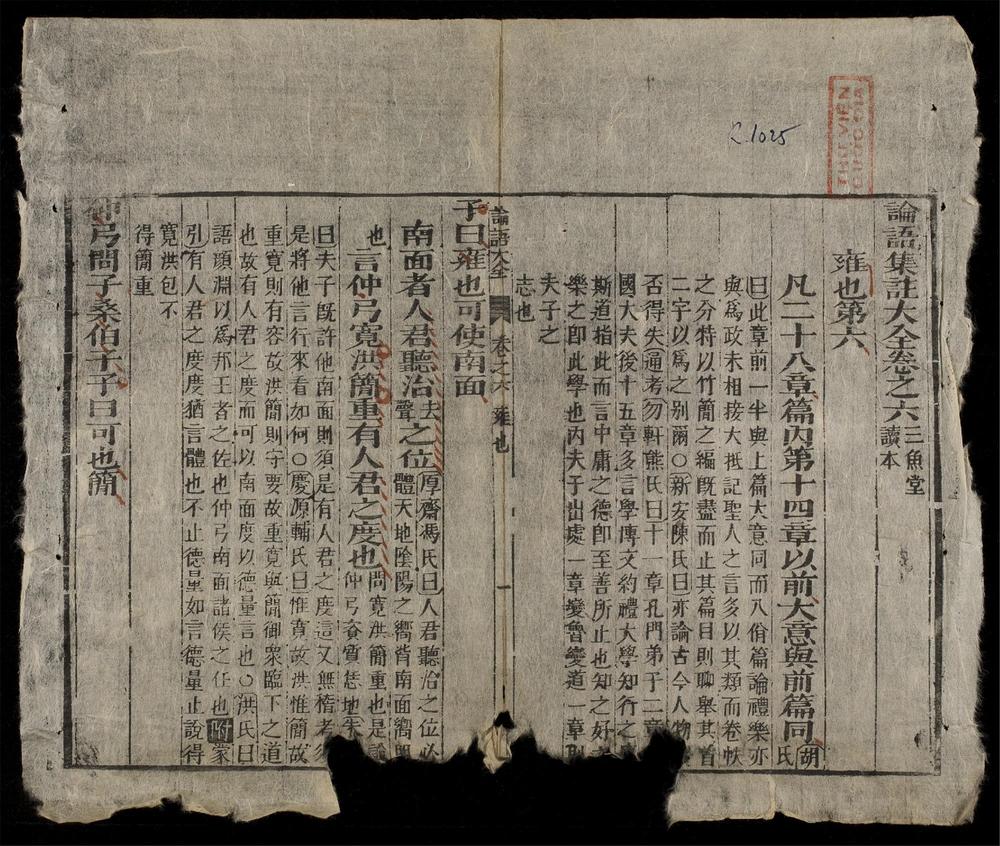 論語集註大全卷之六 三魚堂讀本
雍也第六
凡二十八章篇內第十四章以前大意與前篇同 胡氏
曰此章前一半與上篇大意同而八佾篇論禮樂亦
與爲政未相接大抵記聖人之言多以其類而卷帙
之分特以竹簡之編旣盡而止其篇目則聊舉其首
二字以爲之別爾○新安陳氏曰亦論古今人物
否得失通考勿軒熊氏曰十一章孔門弟子二章
國大夫後十五章多言學博文約禮大學知行之
斯道指此而言中庸之德卽至善所止也知之好
樂之卽此學也內夫子出處一章變魯變道一章則
夫子之
志也
論語大全 卷之六 雍也 一
子曰雍也可使南面
南面者人君聽治去聲之位 厚齋馮氏曰人君聽治之位必體天地陰陽之嚮背南面嚮明
也言仲弓寬洪簡重有人君之度也 問寬洪簡重也是說仲弓資質恁地
曰夫子旣許他南面則須是有人君之度這又無稽考須
是將他言行來看如何○慶源輔氏曰惟寬故洪惟簡故
重寬則有容故洪簡則守要故重寬與簡御衆臨下之道
也故有人君之度而可以南面度以德量言也○洪氏曰
語顏淵以爲邦王者之佐也仲弓南面諸侯之任也 附蒙
引有人君之度度猶言體也不止德量如言德量止說得
寬洪包不
得簡重
仲弓問子桑伯子子曰可也簡
R.1025
THƯ VIỆN